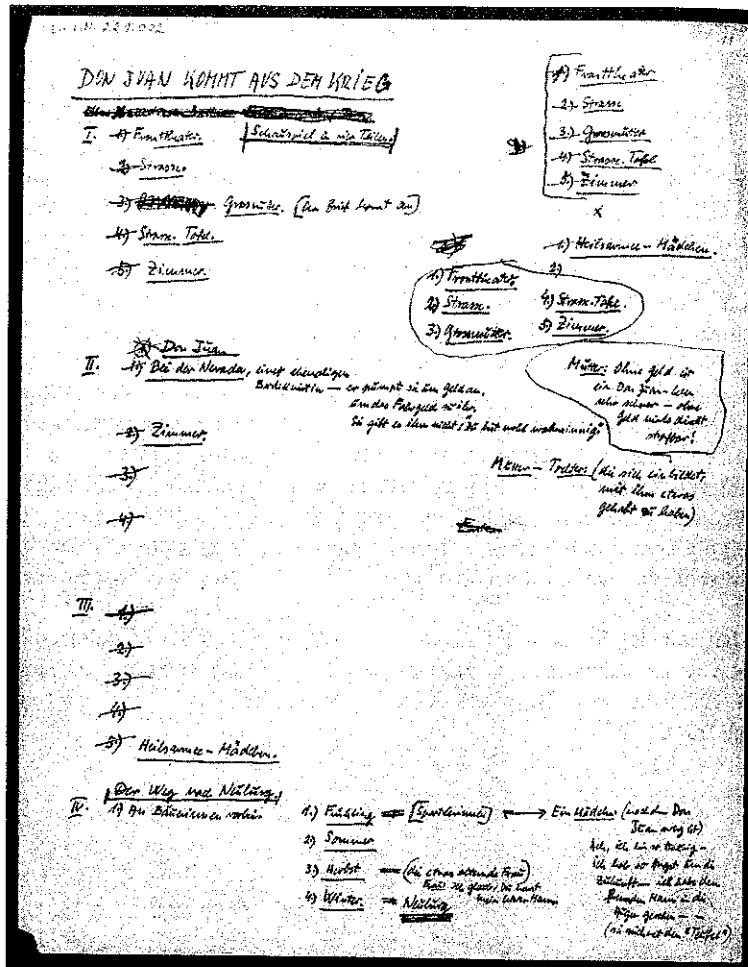 DON JUAN KOMMT AUS DEM KRIEG
I. 1) Fronttheater. [Schauspiel in vier Teilen]
2) Strasse.
3) Grossmutter. [Der Brief kommt an]
4) Strasse. Tafel.
5) Zimmer.
1) Fronttheater
2) Strasse
3.) Grossmutter
4) Strasse. Tafel
5.) Zimmer
x
1) Heilsarmee-Mädchen.
2)
1.) Fronttheater.
2) Strasse.
3.) Grossmutter.
4.) Strasse. Tafel.
5) Zimmer.
Don Juan
II. 1) Bei der, einer ehemaligen
— er pumpt sie um Geld an,
um das Fahrgeld
Sie gibt es ihm nicht: Du bist wohl wahnsinnig!
2) Zimmer.
3)
4)
Mutter: Ohne Geld ist
ein Don Juan-Leben
sehr schwer — ohne
Geld direkt
strafbar!
Mutter — Tochter (die sich einbildet,
mit ihm etwas
gehabt zu haben)
III. 1.)
2.)
3.)
4.)
5) Heilsarmee-Mädchen.
Der Weg nach
IV. 1) An Bäuerinnen vorbei
1.) Frühling
2) Sommer
3.) Herbst — (die etwas alternde Frau)
Frau: Ich glaubte, Du
mein Mann
4) Winter.
Ein Mädchen (nachdem Don
Juan weg ist)
Ach, ich bin so traurig —
ich hab so Angst um die
Zukunft — ich habe dem
fremden Mann in die
Augen gesehen — —
(sie zeichnet den "Teufel")